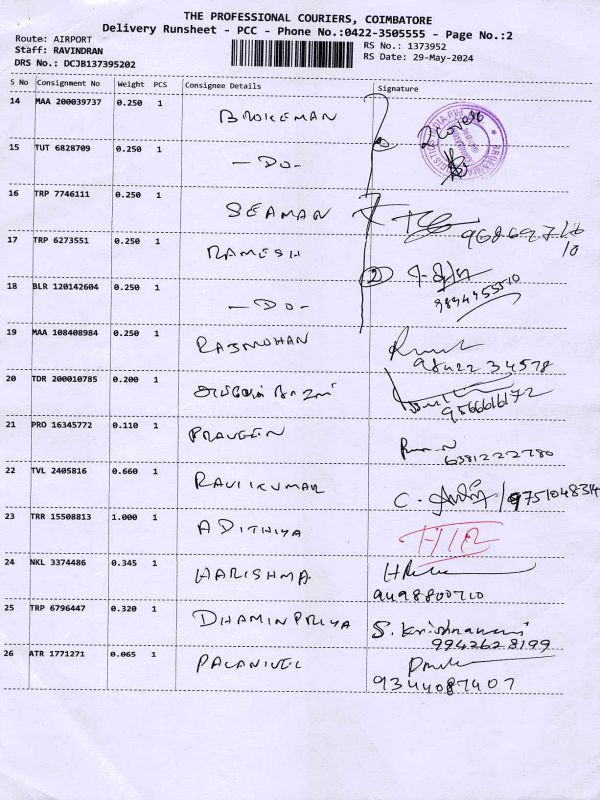 THE PROFESSIONAL COURIERS, COIMBATORE
Delivery Runsheet - PCC - Phone No.:0422-3505555 - Page No.:2
Route: AIRPORT
Staff: RAVINDRAN
DRS No.: DCJB137395202
RS No.: 1373952
RS Date: 29-May-2024
S No Consignment No Weight PCS Consignee Details Signature
14 MAA 200039737 0.250 1 BROKEMAN 2 Covers
15 TUT 6828709 0.250 1 -Do-
16 TRP 7746111 0.250 1 SEAMAN
17 TRP 6273551 0.250 1 RAMESH 2
18 BLR 120142604 0.250 1 -Do-
19 MAA 108408984 0.250 1 RAJMOHAN
98422 34578
20 TDR 200010785 0.200 1
9566616172
21 PRO 16345772 0.110 1 PRAVEEN
6381222780
22 TVL 2405816 0.660 1 RAVIKUMAR C. /9751048314
23 TRR 15508813 1.000 1 ADITHIYA
24 NKL 3374486 0.345 1 HARISHMA
9498800710
25 TRP 6796447 0.320 1 DHAMINPRIYA S. Krishnaveni
9942628199
26 ATR 1771271 0.065 1 PALANIVEL
9344087407